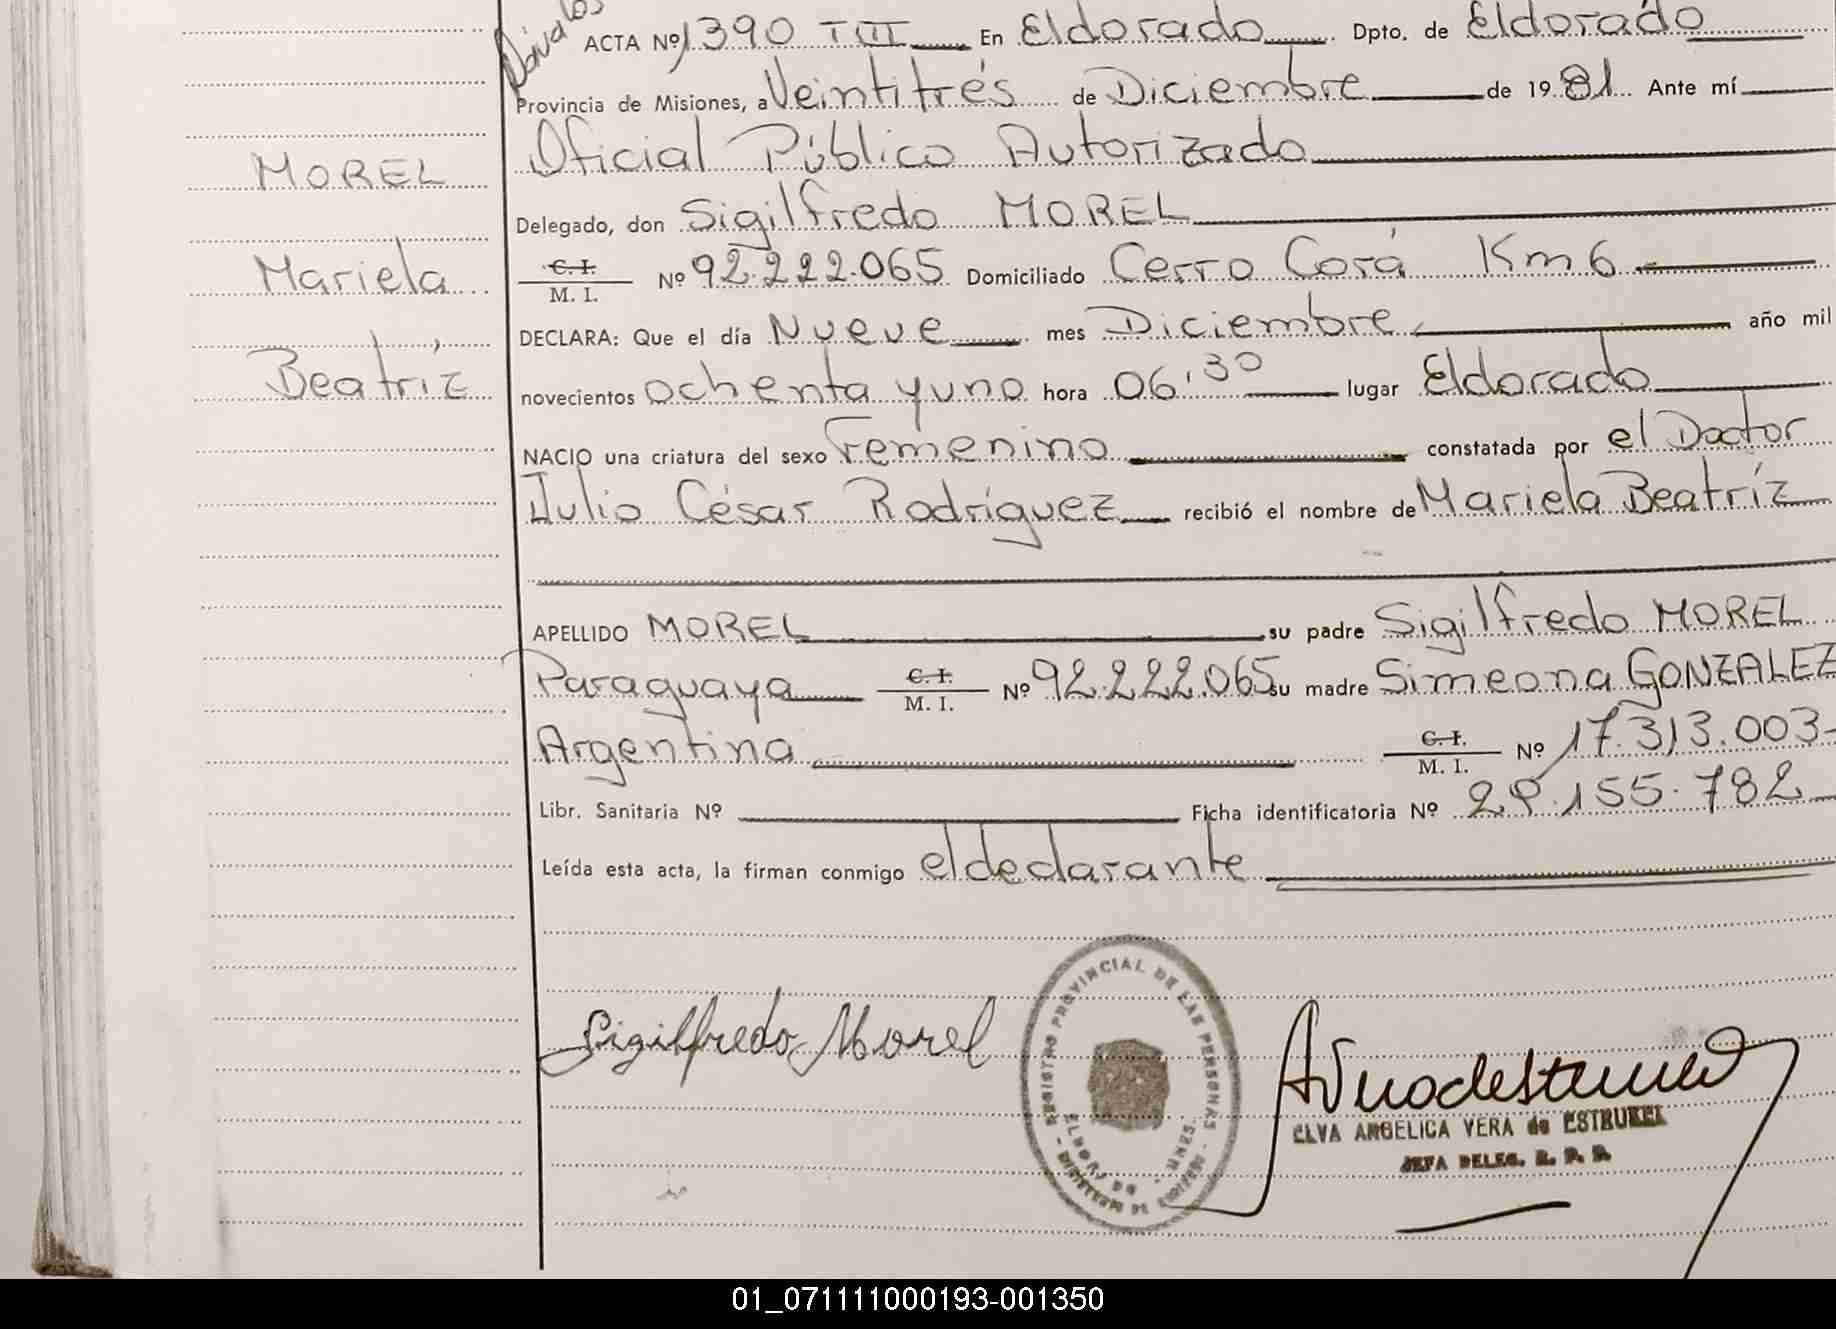 ACTA Nº 1390 TIII En Eldorado Dpto. de Eldorado
Provincia de Misiones, a Veintitrés de Diciembre de 1981 Ante mí
Oficial Público Autorizado
MOREL
Delegado, don Sigilfredo MOREL
C. I.
M. I. Nº 92.222.065 Domiciliado Cerro Corá Km 6
Mariela
DECLARA: Que el día Nueve mes Diciembre año mil
Beatríz
novecientos ochenta y uno hora 06,30 lugar Eldorado
NACIO una criatura del sexo Femenino constatada por el Doctor
Julio César Rodríguez recibió el nombre de Mariela Beatríz
APELLIDO MOREL su padre Sigilfredo MOREL
Paraguaya C. I. M. I. Nº 92.222.065 su madre Simeona GONZALEZ
Argentina C. I. M. I. Nº 17.313.003
Libr. Sanitaria Nº Ficha identificatoria Nº 29.155.782
Leída esta acta, la firman conmigo el declarante
Sigilfredo Morel
REGISTRO PROVINCIAL DE LAS PERSONAS
ELDORADO
ELVA ANGELICA VERA de ESTRUKEL
JEFA DELEG. R. P. P.
01_071111000193-001350